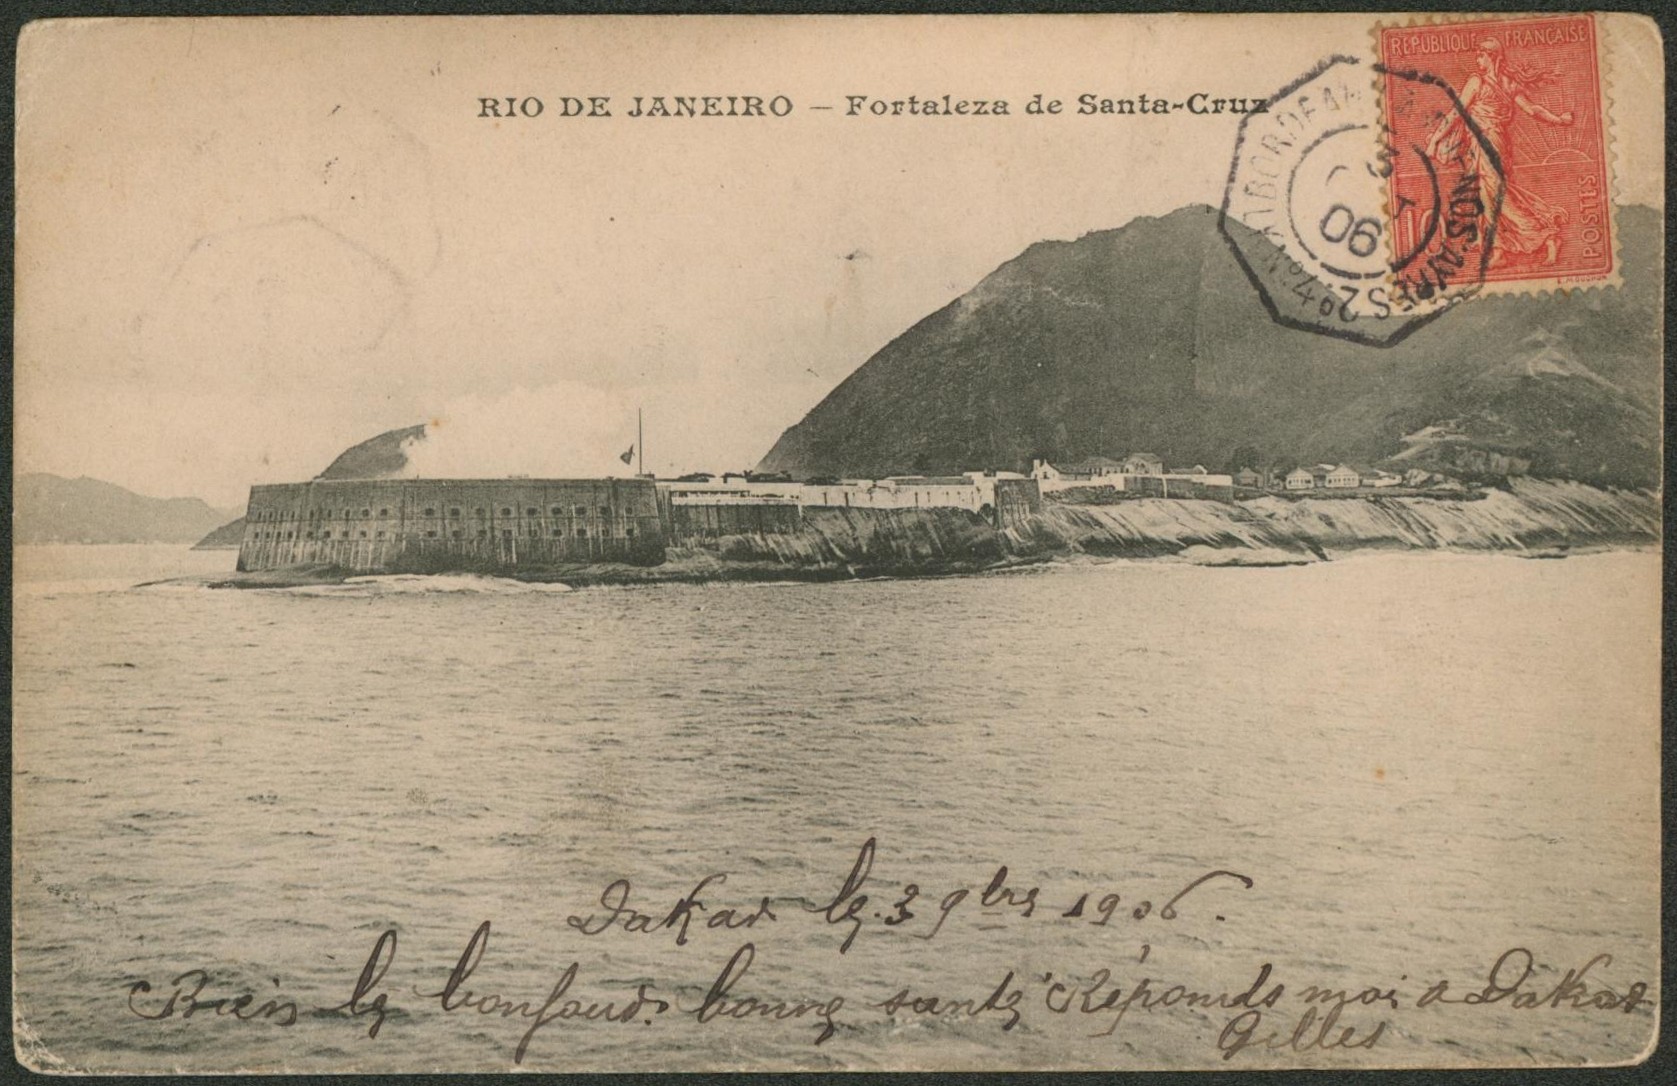 RIO DE JANEIRO — Fortaleza de Santa-Cruz
REPUBLIQUE FRANÇAISE
POSTES
10
BUENOS-AYRES 2
06
Dakar le 3 9bre 1906.
Bien le bonjour bonne santé Réponds moi a Dakar
Gilles